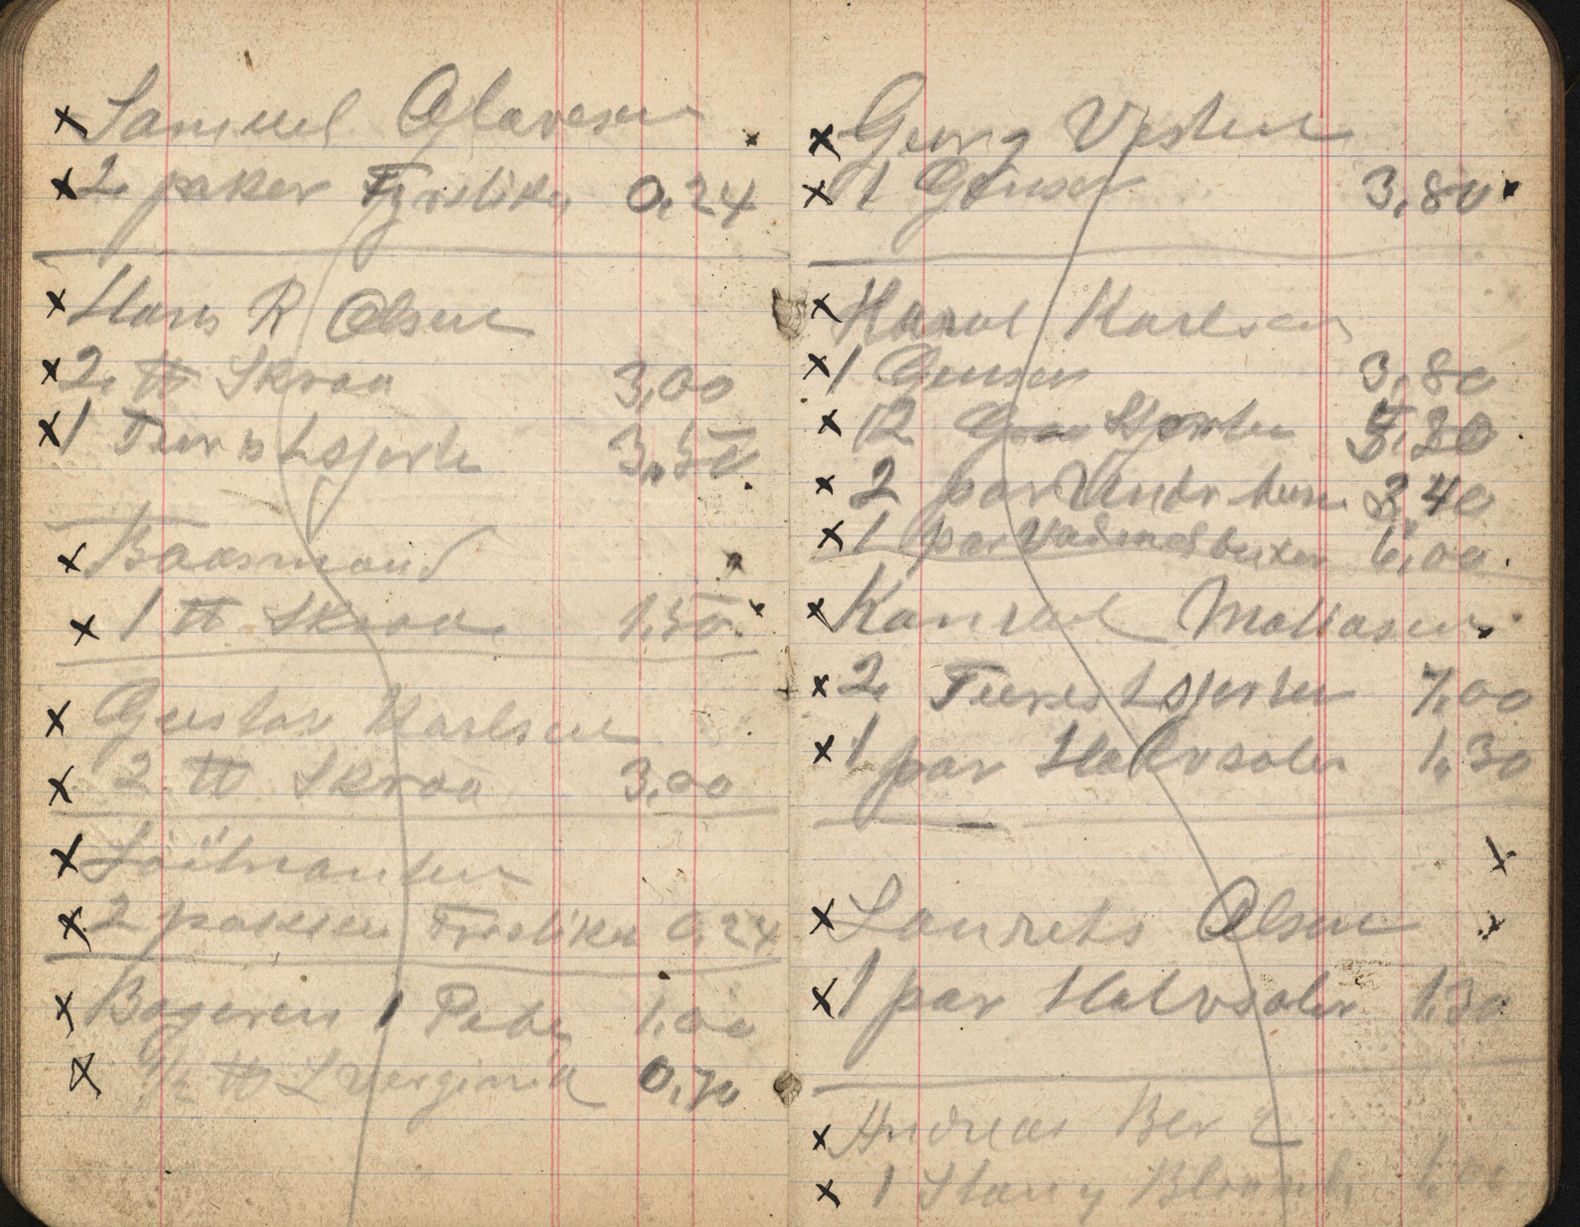 x Samuel Olavesen
x 2 paker Fyrstikr 0,24
x Hans R Olsen
x 2 ℔ Skraa 3,00
x 1 Turistsjorte 3,50
x Baasmand
x 1 ℔ Skraa 1,50
x Gustav Karlsen
x 2 ℔ Skraa 3,00
x
x 2 pakker Fyrstikr 0,24
x Bageren 1 Pibe 1,00
x 1/2 ℔ Sverginia 0,70
x Georg Vesten
x 1 Genser 3,80
x Harol Karlsen
x 1 Genser 3,80
x 2 Skjorter 5,20
x 2 par Undr buxe 3,40
x 1 par Vadmelsbuxer 6,00
x Konrad Matiasen
x 2 Turistsjorter 7,00
x 1 par Halvsoler 1,30
x Laurets Olsen
x 1 par Halvsoler 1,30
x Andreas Berg
x 1